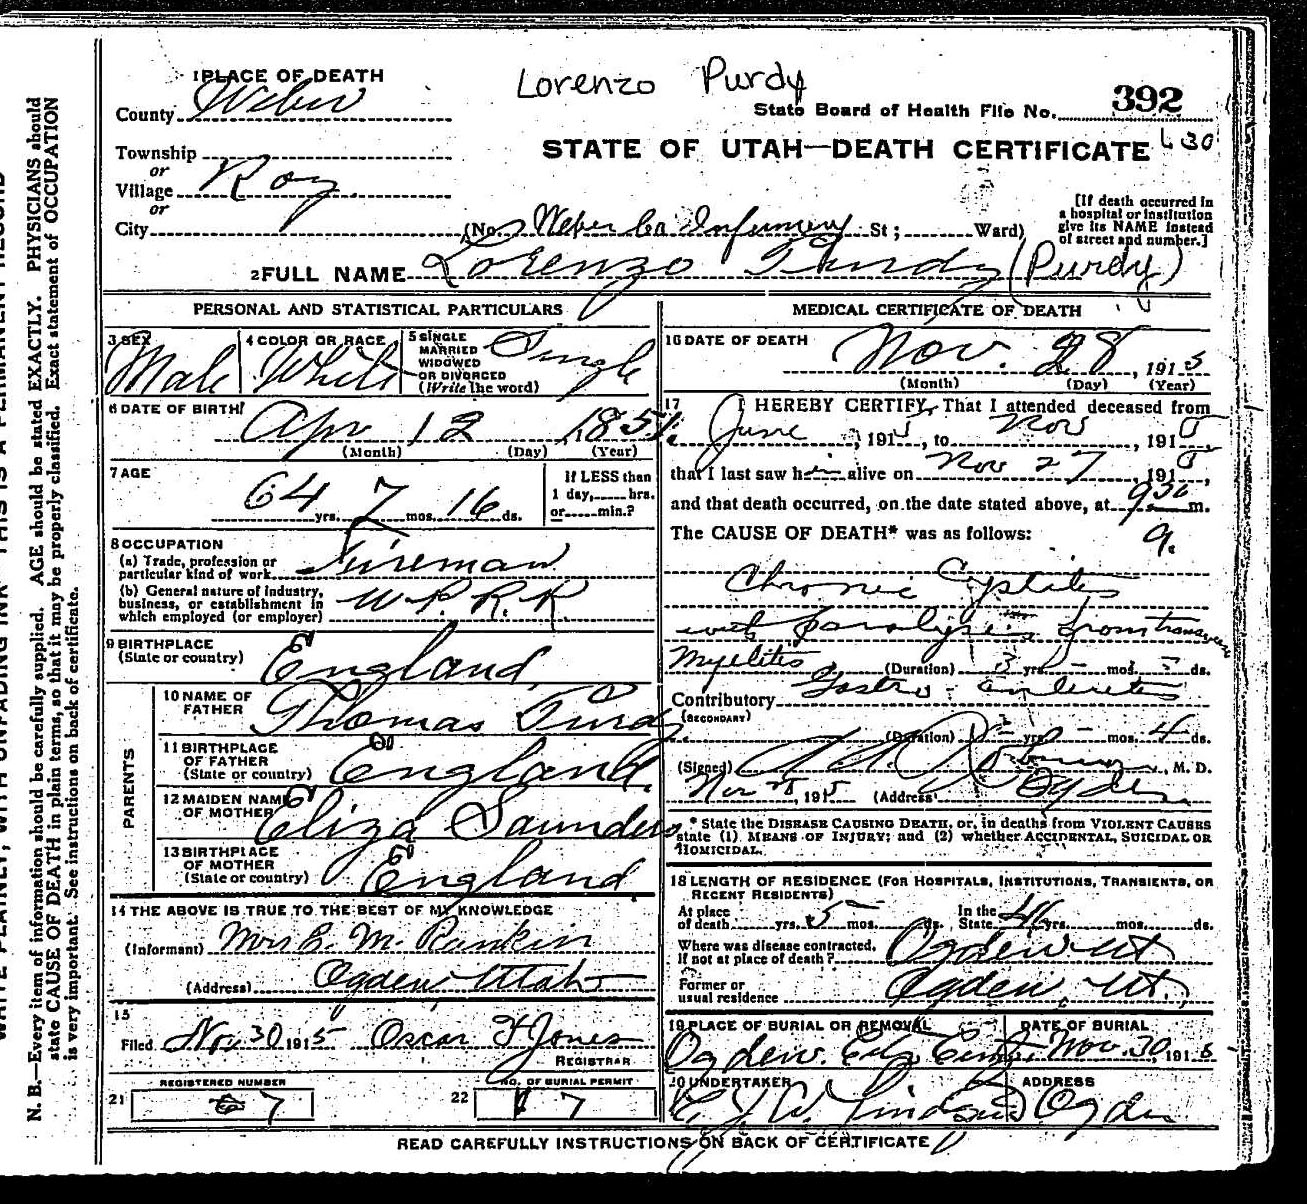 WRITE PLAINLY, WITH UNFADING INK—THIS IS A PERMANENT RECORD
N. B.—Every item of information should be carefully supplied. AGE should be stated EXACTLY. PHYSICIANS should
state CAUSE OF DEATH in plain terms, so that it may be properly classified. Exact statement of OCCUPATION
is very important. See instructions on back of certificate.
Lorenzo Purdy
1 PLACE OF DEATH
County Weber
State Board of Health File No. 392
630
STATE OF UTAH—DEATH CERTIFICATE
Township
or
Village Roy
or
City (No. Weber Co Infirmary St; Ward)
[If death occurred in
a hospital or institution
give its NAME instead
of street and number.]
2 FULL NAME Lorenzo Purdy (Purdy)
PERSONAL AND STATISTICAL PARTICULARS
3 SEX Male
4 COLOR OR RACE White
5 SINGLE
MARRIED
WIDOWED
OR DIVORCED
(Write the word) Single
6 DATE OF BIRTH Apr 12 1851.
(Month) (Day) (Year)
7 AGE
64 yrs. 7 mos. 16 ds.
If LESS than
1 day, hrs.
or min.?
8 OCCUPATION
(a) Trade, profession or
particular kind of work Fireman
(b) General nature of industry,
business, or establishment in
which employed (or employer) W.P. R.R.
9 BIRTHPLACE
(State or country) England
PARENTS
10 NAME OF
FATHER Thomas Purdy
11 BIRTHPLACE
OF FATHER
(State or country) England
12 MAIDEN NAME
OF MOTHER Eliza Saunders
13 BIRTHPLACE
OF MOTHER
(State or country) England
14 THE ABOVE IS TRUE TO THE BEST OF MY KNOWLEDGE
(Informant) Mrs C. M. Rankin
(Address) Ogden Utah
15
Filed Nov 30 1915 Oscar H Jones
REGISTRAR
21 REGISTERED NUMBER 7
22 NO. OF BURIAL PERMIT 7
MEDICAL CERTIFICATE OF DEATH
16 DATE OF DEATH
Nov. 28, 1915
(Month) (Day) (Year)
17 I HEREBY CERTIFY, That I attended deceased from
June, 1915, to Nov, 1915,
that I last saw him alive on Nov 27, 1915,
and that death occurred, on the date stated above, at 930 m.
The CAUSE OF DEATH* was as follows: 9.
Chronic Cystitis
with paralysis from transverse
Myelitis (Duration) 3 yrs. - mos. - ds.
Contributory Gastro-enteritis
(SECONDARY)
(Duration) - yrs. - mos. 4 ds.
(Signed) Robinson, M. D.
Nov, 1915 (Address) Ogden
* State the DISEASE CAUSING DEATH, or, in deaths from VIOLENT CAUSES
state (1) MEANS OF INJURY; and (2) whether ACCIDENTAL, SUICIDAL OR
HOMICIDAL.
18 LENGTH OF RESIDENCE (FOR HOSPITALS, INSTITUTIONS, TRANSIENTS, OR
RECENT RESIDENTS)
At place
of death yrs. 5 mos. ds. In the
State 46 yrs. mos. ds.
Where was disease contracted.
If not at place of death? Ogden Ut
Former or
usual residence Ogden, Ut.
19 PLACE OF BURIAL OR REMOVAL
Ogden City Cemt.
DATE OF BURIAL
Nov. 30, 1915
20 UNDERTAKER
Lindsay
ADDRESS
Ogden
READ CAREFULLY INSTRUCTIONS ON BACK OF CERTIFICATE